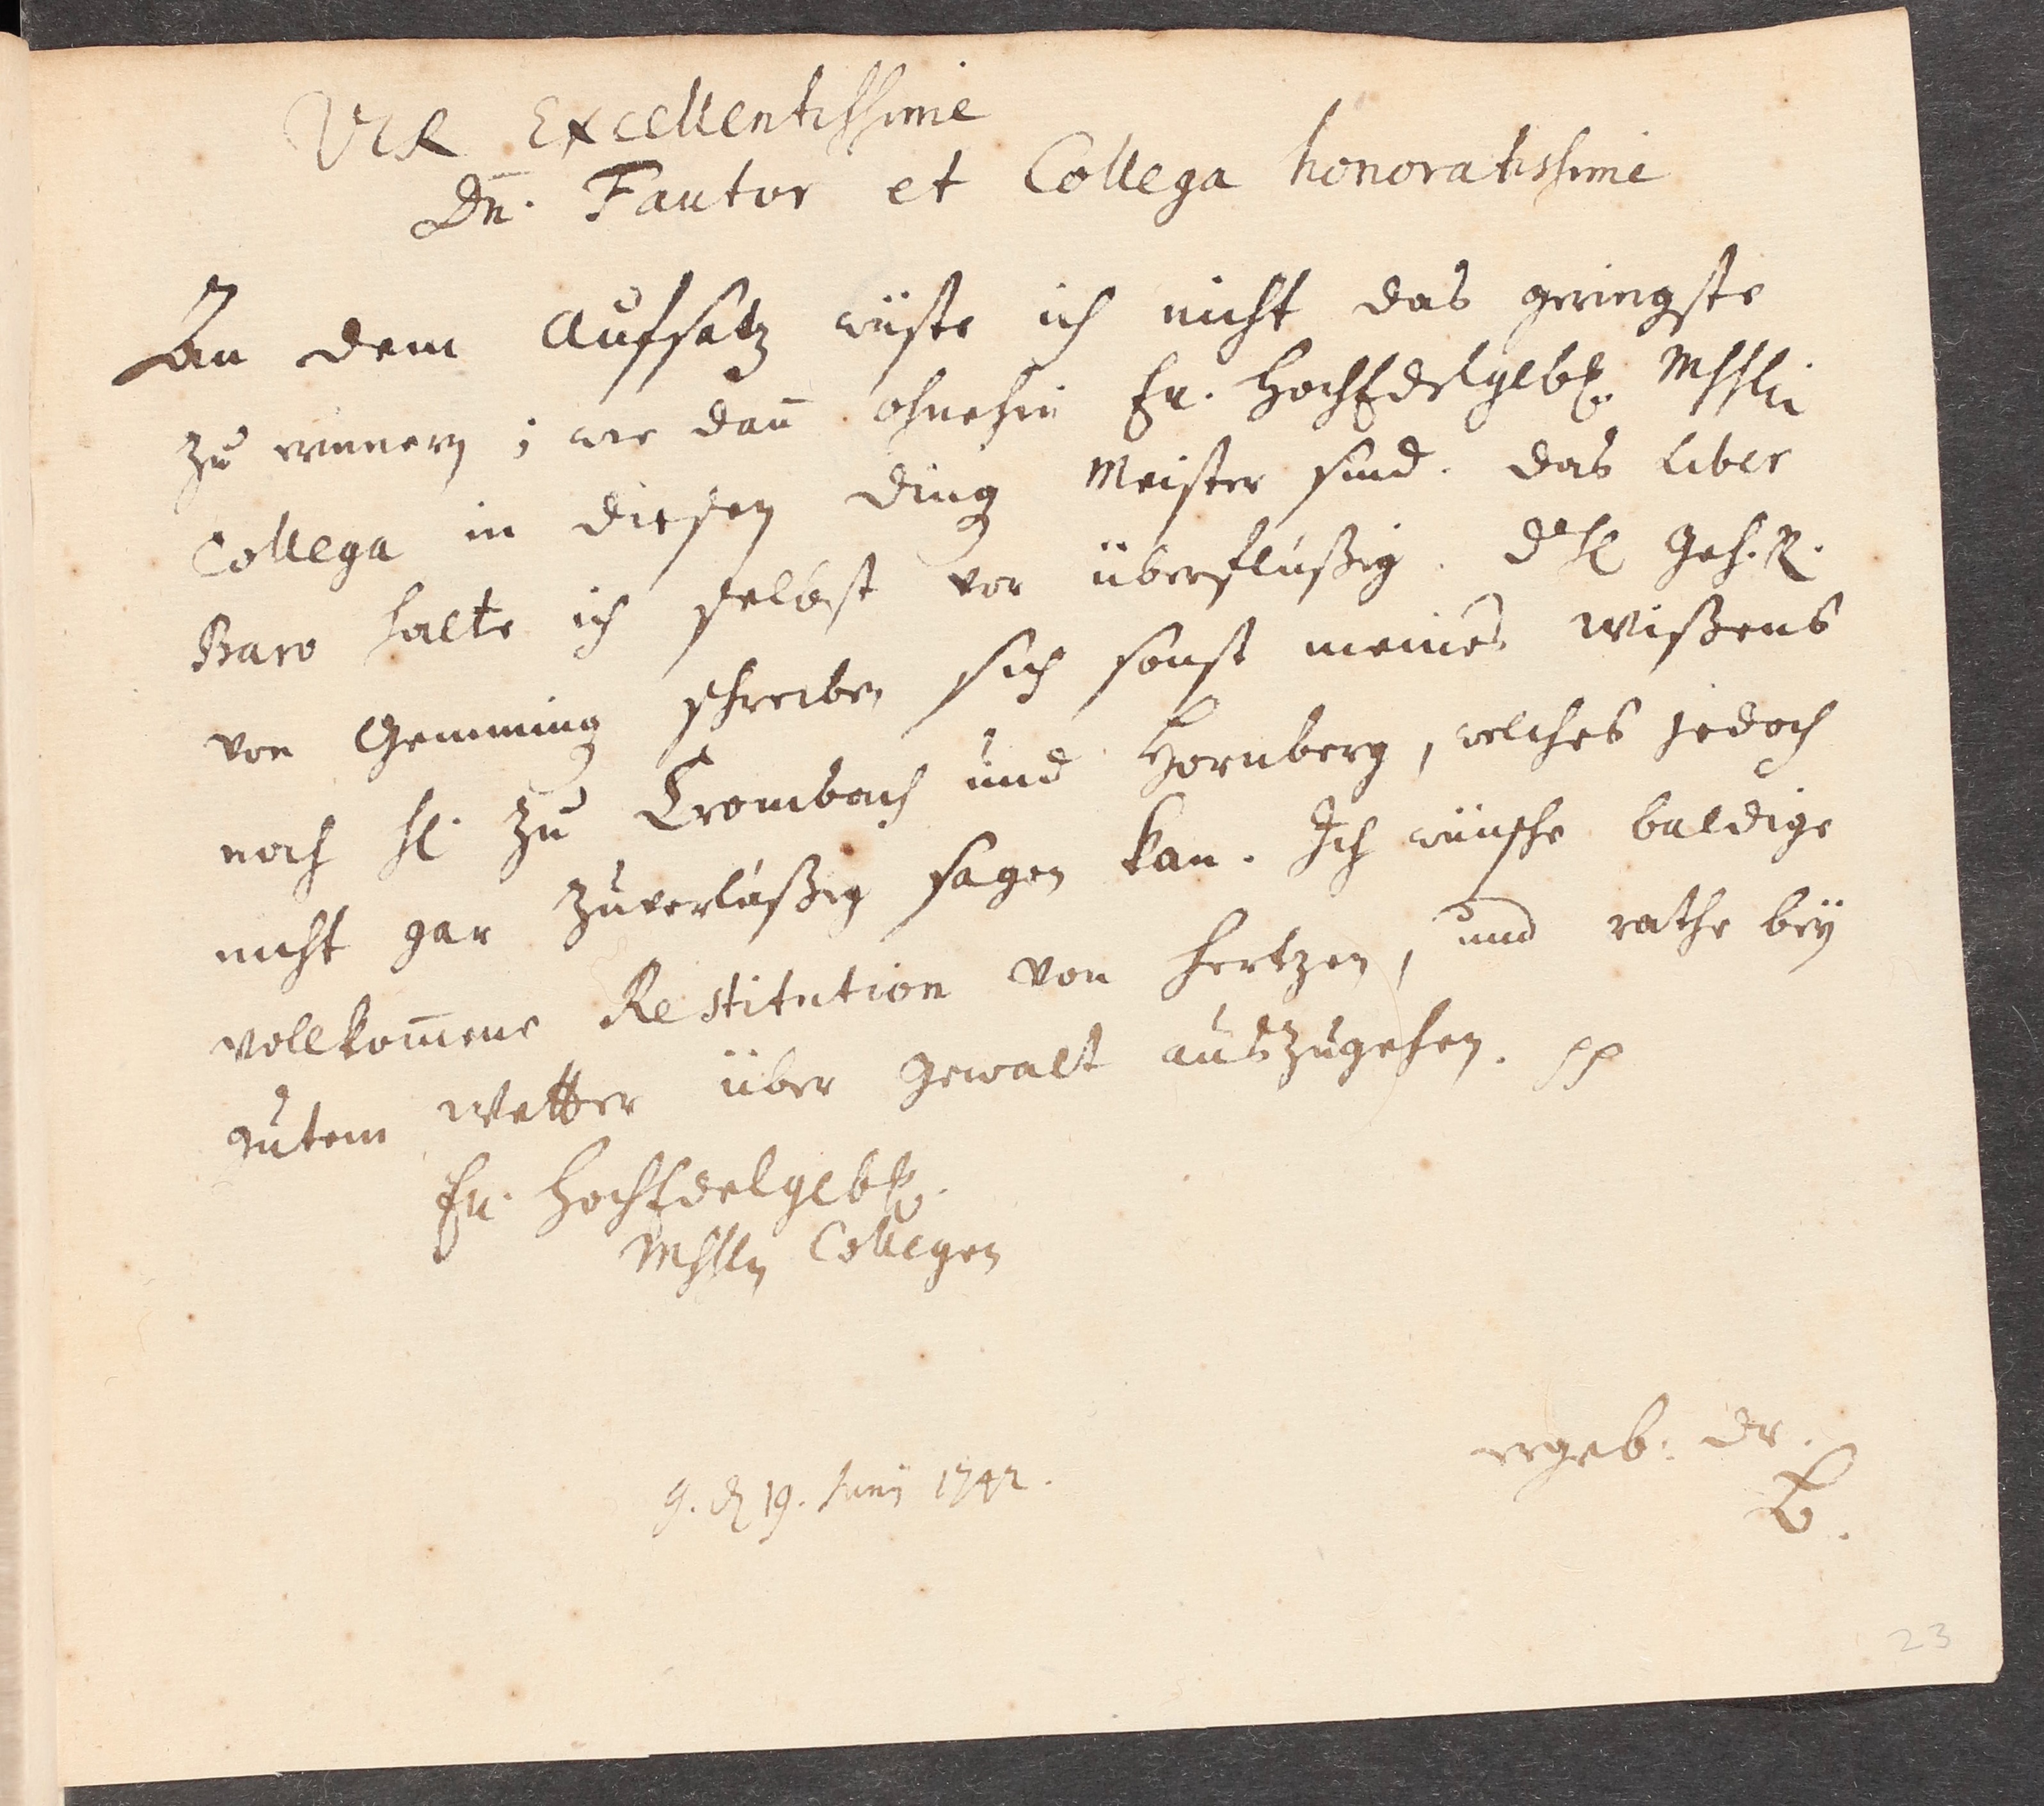 VIR Excellentissime
Dn̄. Fautor et Collega honoratissime
An dem Aufsatz wüste ich nicht das geringste
zu erinnern; wie dan̄ ohnehin Ew. HochEdelgeb.
Collega in diesen ding Meister sind. das Liber
Baro halte ich selbst vor überflüßig. Geh. R.
von Gemming schreiben sich sonst meines wißens
noch H. zu Trombach und Hornberg, welches jedoch
nicht gar zuverläßig sagen kan. Ich wünsche baldige
vollkom̄ene Restitution von hertzen, und rathe bey
gutem wetter über gewalt auszugehen. pp
Ew. HochEdelgeb.
Collegen
ergeb. dr.
d 19. Junij 1742.
23